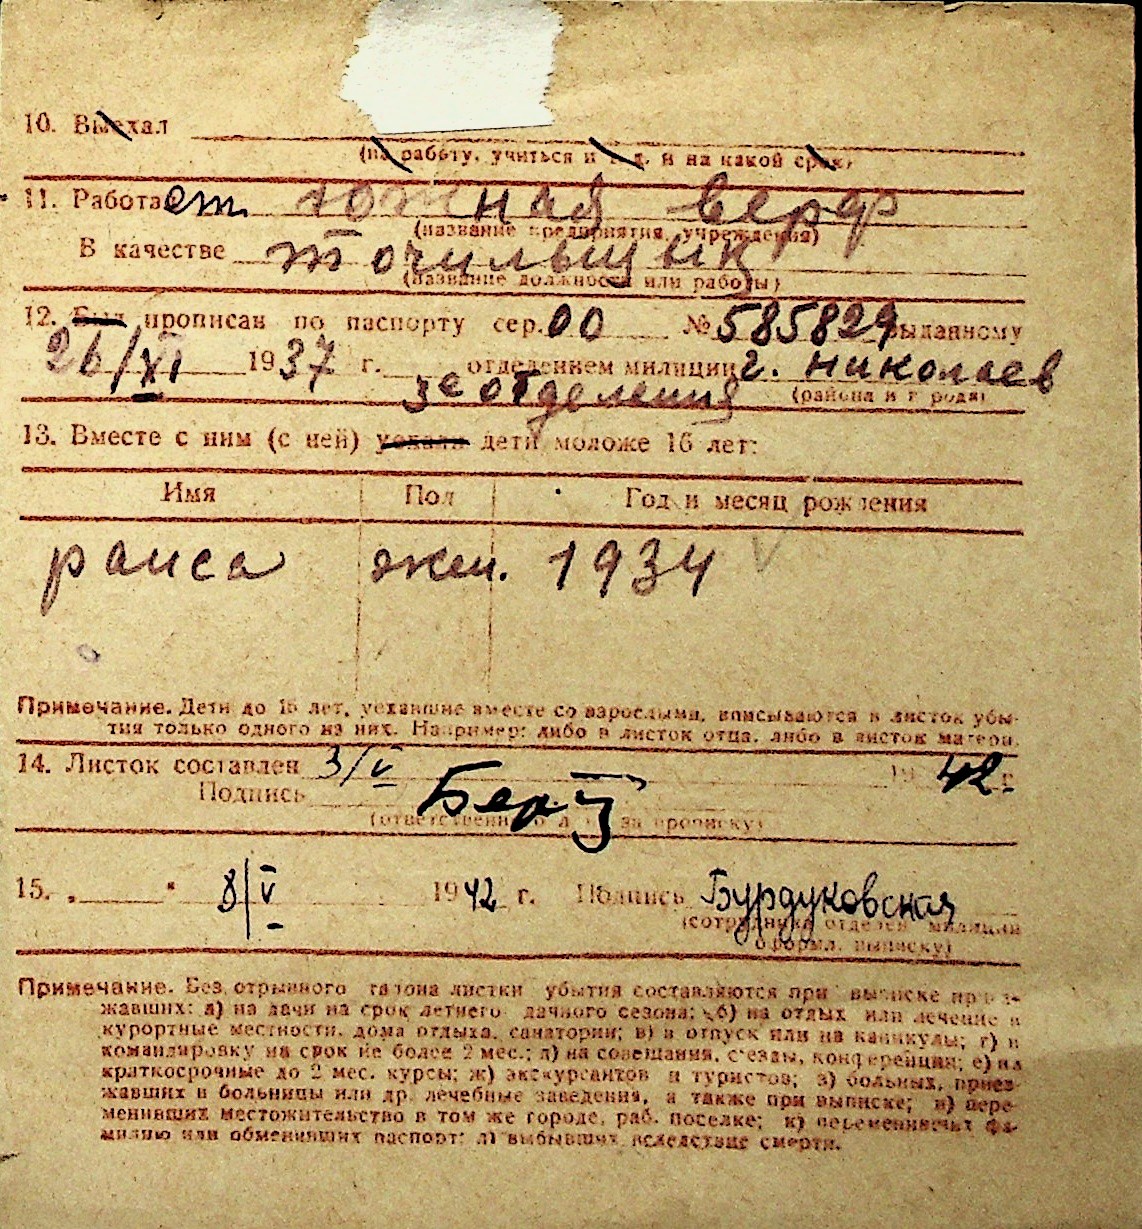 10. Выехал
(на работу, учиться и т. д. и на какой срок)
11. Работает южная верф
(название предприятия, учреждения)
В качестве точильщик
(название должности или работы)
12. Был прописан по паспорту сер. 00 № 585829 выданному
26/XI 1937 г. отделением милиции г. николаев
3е отделения (района и города)
13. Вместе с ним (с ней) уехали дети моложе 16 лет:
Имя Пол Год и месяц рождения
раиса жен. 1934
Примечание. Дети до 16 лет, уехавшие вместе со взрослыми, вписываются в листок убы-
тия только одного из них. Например: либо в листок отца, либо в листок матери.
14. Листок составлен 3/V 1942 г.
Подпись
(ответственного лица за прописку)
15. „ " 8/V 1942 г. Подпись Бурдуковская
(сотрудника отделен. милиции
оформл. выписку)
Примечание. Без отрывного талона листки убытия составляются при выписке приез-
жавших: а) на дачи на срок летнего дачного сезона; б) на отдых или лечение в
курортные местности, дома отдыха, санатории; в) в отпуск или на каникулы; г) в
командировку на срок не более 2 мес.; д) на совещания, съезды, конференции; е) на
краткосрочные до 2 мес. курсы; ж) экскурсантов и туристов; з) больных, приез-
жавших в больницы или др. лечебные заведения, а также при выписке; и) пере-
менивших местожительство в том же городе, раб. поселке; к) переменивших фа-
милию или обменивших паспорт; л) выбывших вследствие смерти.